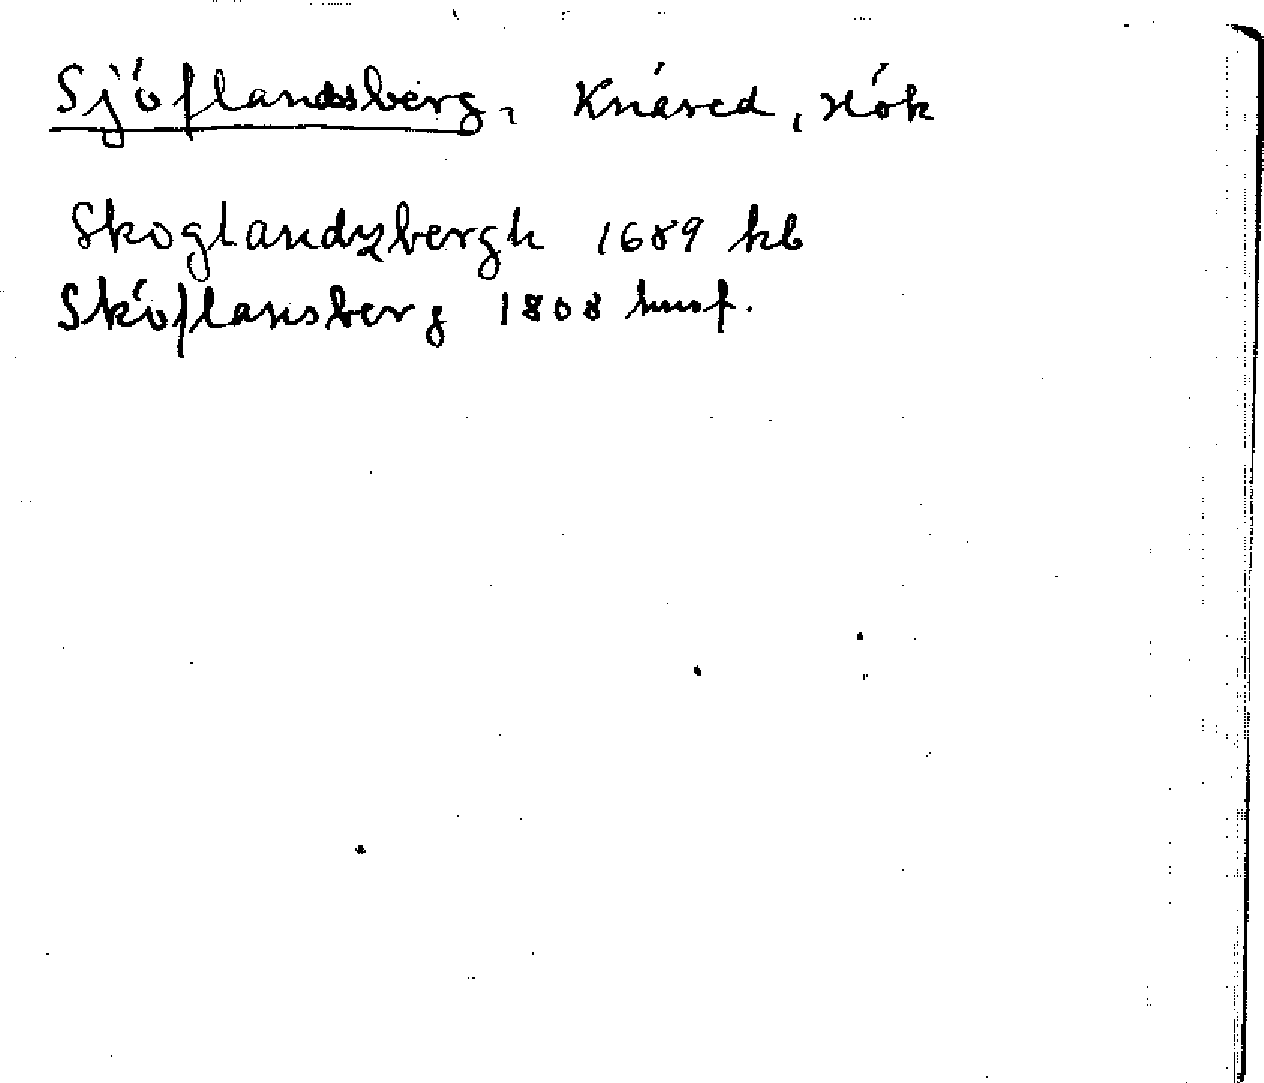 Sjöflandsberg, Knäred, Hök
Skoglandzbergh 1689 kb
Sköflansberg 1808 husf.